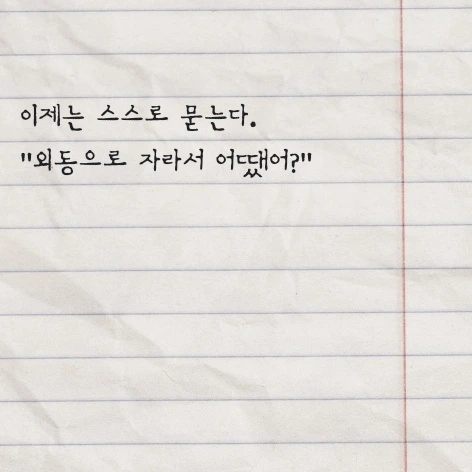 이제는 스스로 묻는다.
"외동으로 자라서 어땠어?"